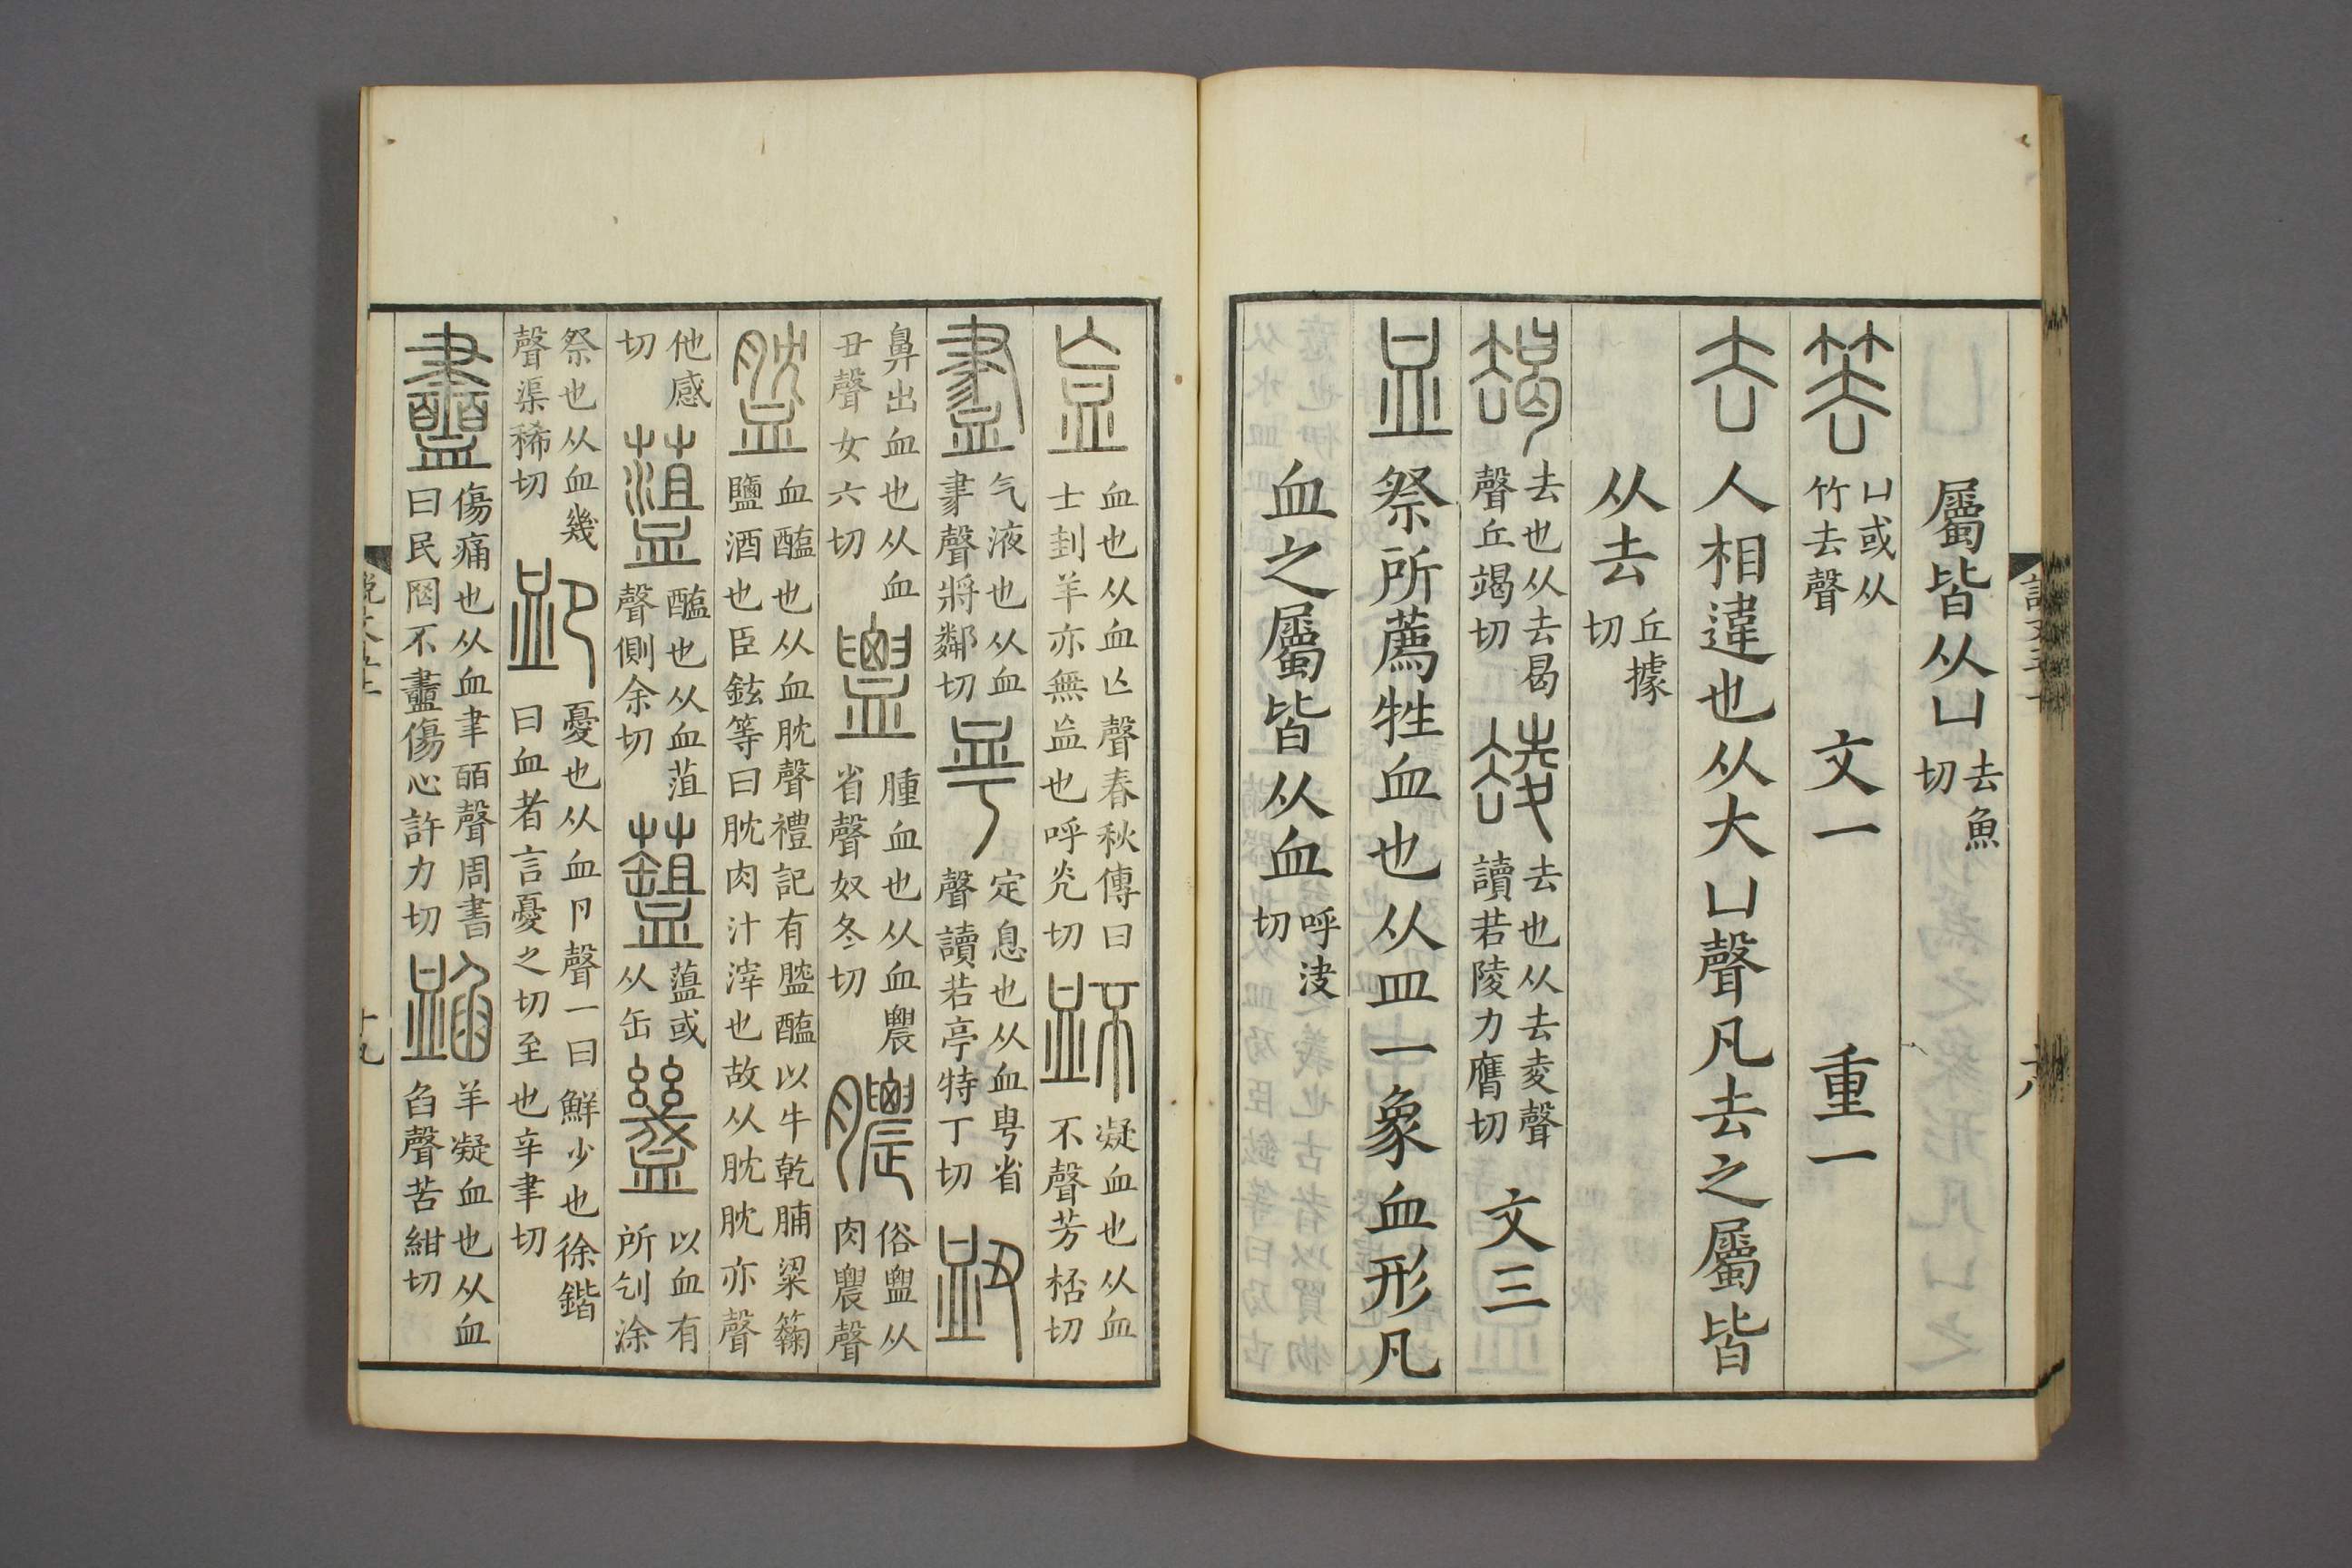 屬皆从凵去魚切
𥬔凵或从竹去聲 文一 重一
去人相違也从大凵聲凡去之屬皆
从去丘據切
朅去也从去曷聲丘竭切𠫭去也从去夌聲讀若陵力膺切 文三
血祭所薦牲血也从皿一象血形凡
血之屬皆从血呼決切
說文五上 十八
衁血也从血亾聲春秋傳曰士刲羊亦無衁也呼光切衃凝血也从血不聲芳桮切
𧗁气液也从血𦘔聲將鄰切𥁀定息也从血甹省聲讀若亭特丁切衄
鼻出血也从血丑聲女六切𧗕腫血也从血農省聲奴冬切膿俗𧗕从肉農聲
𧖷血醢也从血䏙聲禮記有𧖷醢以牛乾脯粱䴬鹽酒也臣鉉等曰䏙肉汁滓也故从䏙䏙亦聲
他感切𧗎醢也从血菹聲側余切𧗏𧗎或从缶𧗐以血有所刉涂
祭也从血幾聲渠稀切卹憂也从血卪聲一曰鮮少也徐鍇曰血者言憂之切至也辛聿切
衋傷痛也从血聿皕聲周書曰民罔不衋傷心許力切䘓羊凝血也从血臽聲苦紺切
說文五上 十九